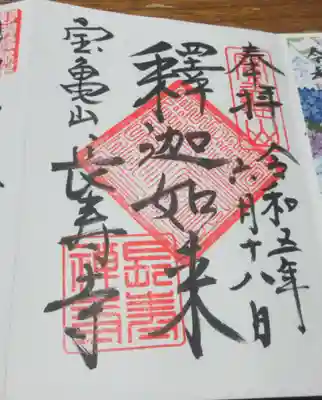 奉拝
令和五年
六月十八日
釋迦如来
宝亀山
長寿寺